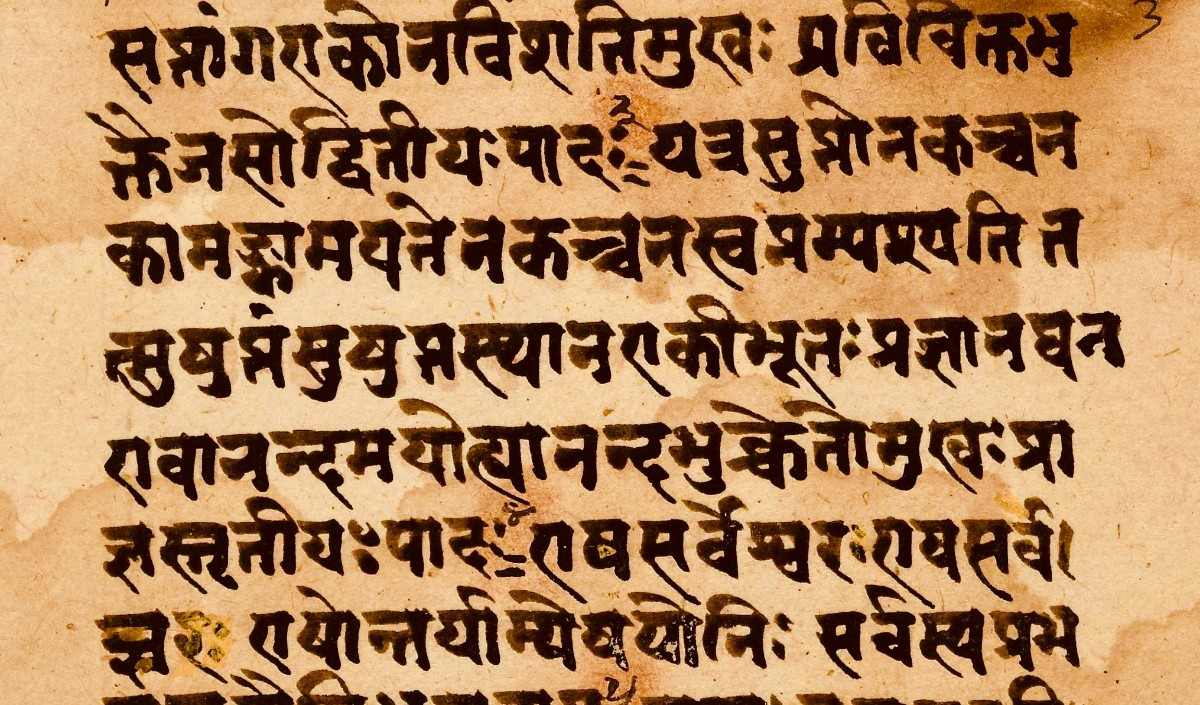 3
सप्तांगएकोनविंशतिमुखः प्रविविक्तभु
क्तैजसोद्वितीयःपादः ३ यत्रसुप्तोनकच्चन
कामङ्कामयतेनकच्चनस्वप्नम्पश्यति त
त्सुषुप्तंसुषुप्तस्थानएकीभूतःप्रज्ञानघन
एवानन्दमयोत्यानन्दभुक्चेतोमुखःप्रा
ज्ञस्तृतीयःपादः ४ एषसर्वेश्वरःएषसर्व।
ज्ञः एषोन्तर्याम्येषयोनिः सर्वस्यप्रभ
५